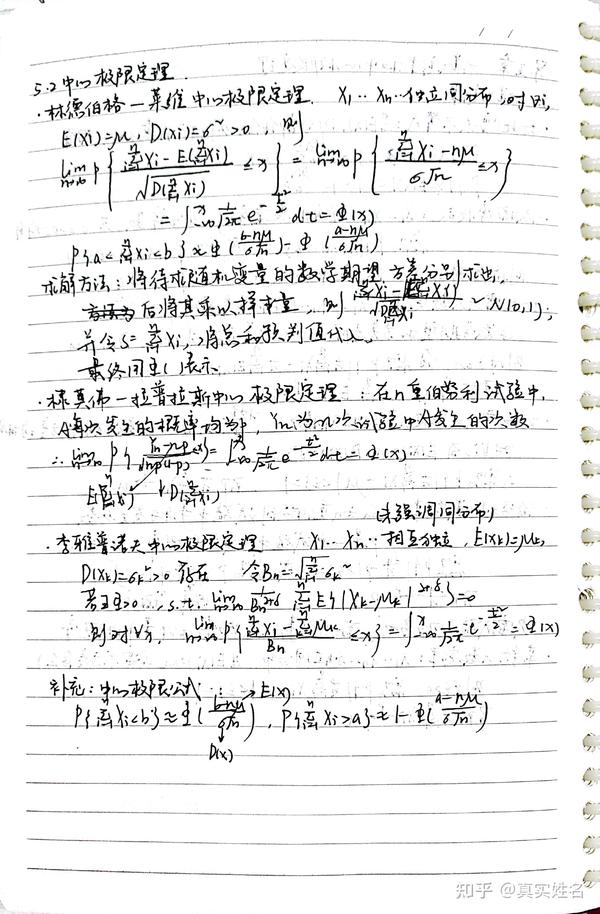 5.2 中心极限定理.
· 林德伯格—莱维中心极限定理. X₁…Xₙ…独立同分布, 对∀i,
E(Xi)=μ, D(Xi)=σ²>0, 则
lim n→∞ P{ (∑Xi - E(∑Xi)) / √D(∑Xi) ≤x} = lim n→∞ P{ (∑Xi - nμ) / σ√n ≤x}
= ∫-∞^x 1/√2π e^(-t²/2) dt = Φ(x)
P{a<∑Xi<b} ≈ Φ((b-nμ)/σ√n) - Φ((a-nμ)/σ√n)
求解方法: 将待求随机变量的数学期望, 方差分别求出,
后将其乘以样本量, 则 ~N(0,1);
并令S=∑Xi, 将总和预判值代入.
最终用Φ( )表示.
· 棣莫佛—拉普拉斯中心极限定理: 在n重伯努利试验中,
A每次发生的概率均为p, Yn为n次试验中A发生的次数
∴ lim n→∞ P{ (Yn-np) / √np(1-p) ≤x} = ∫-∞^x 1/√2π e^(-t²/2) dt = Φ(x)
E(∑Xi) D(∑Xi)
(未强调同分布)
· 李雅普诺夫中心极限定理 X₁…Xn…相互独立, E(Xk)=μk,
D(Xk)=σk²>0 存在 令Bn=√∑σk²
若∃δ>0, s.t. lim n→∞ 1/Bn^(2+δ) ∑E{|Xk-μk|^(2+δ)}=0
则对∀x, lim n→∞ P{ (∑Xi - ∑μk) / Bn ≤x} = ∫-∞^x 1/√2π e^(-t²/2) = Φ(x)
补充: 中心极限公式:
→E(X)
P{∑Xi<b}≈Φ((b-nμ)/σ√n), P{∑Xi>a}≈1-Φ((a-nμ)/σ√n)
D(X)
知乎 @真实姓名